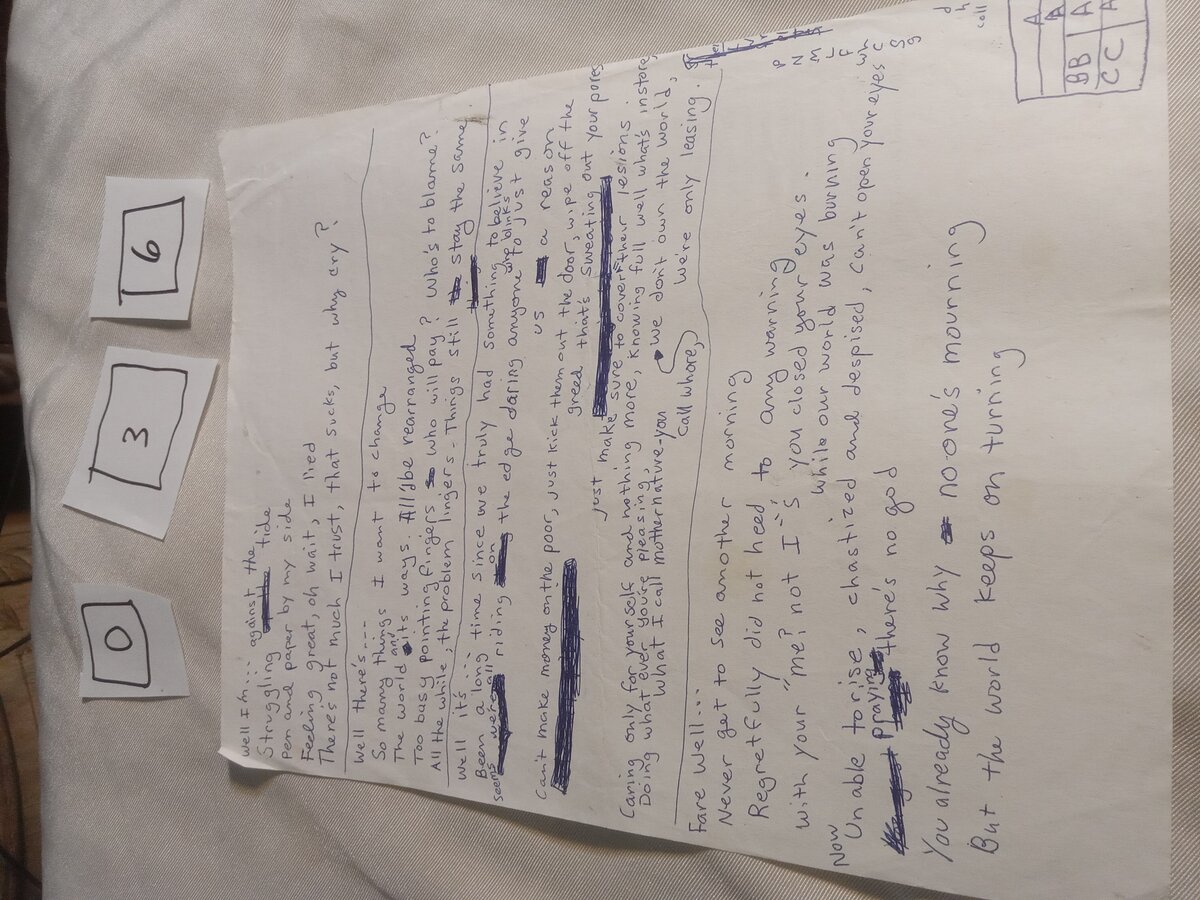 0
3
6
Well I'm.... against the
Struggling tide
Pen and paper by my side
Feeling great, oh wait, I lied
There's not much I trust, that sucks, but why cry?
Well there's....
So many things I want to change
The world and its ways. All 2be rearranged
Too busy pointing fingers who will pay? Who's to blame?
All the while, the problem lingers. Things still stay the same
Well it's....
Been a long time since we truly had something to believe in
Seems were all riding on the edge daring anyone who blinks to just give
us a reason
Can't make money on the poor, just kick them out the door, wipe off the
greed that's sweating out your pores
just make sure to cover their lesions
Caring only for yourself and nothing more, knowing full well what's instore,
Doing what ever you're pleasing,
What I call mother nature-you call whore, we don't own the world,
We're only leasing.
Fare well...
Never get to see another morning
Regretfully did not heed to any warning
With your "me? not I"'s you closed your eyes.
while our world was burning
Now
Unable to rise, chastized and despised, can't open your eyes
Praying there's no god
You already know why no one's mourning
But the world keeps on turning
d
h
call
P
N
M
L
F
wh
C
S
g
A
A
BB A
CC A